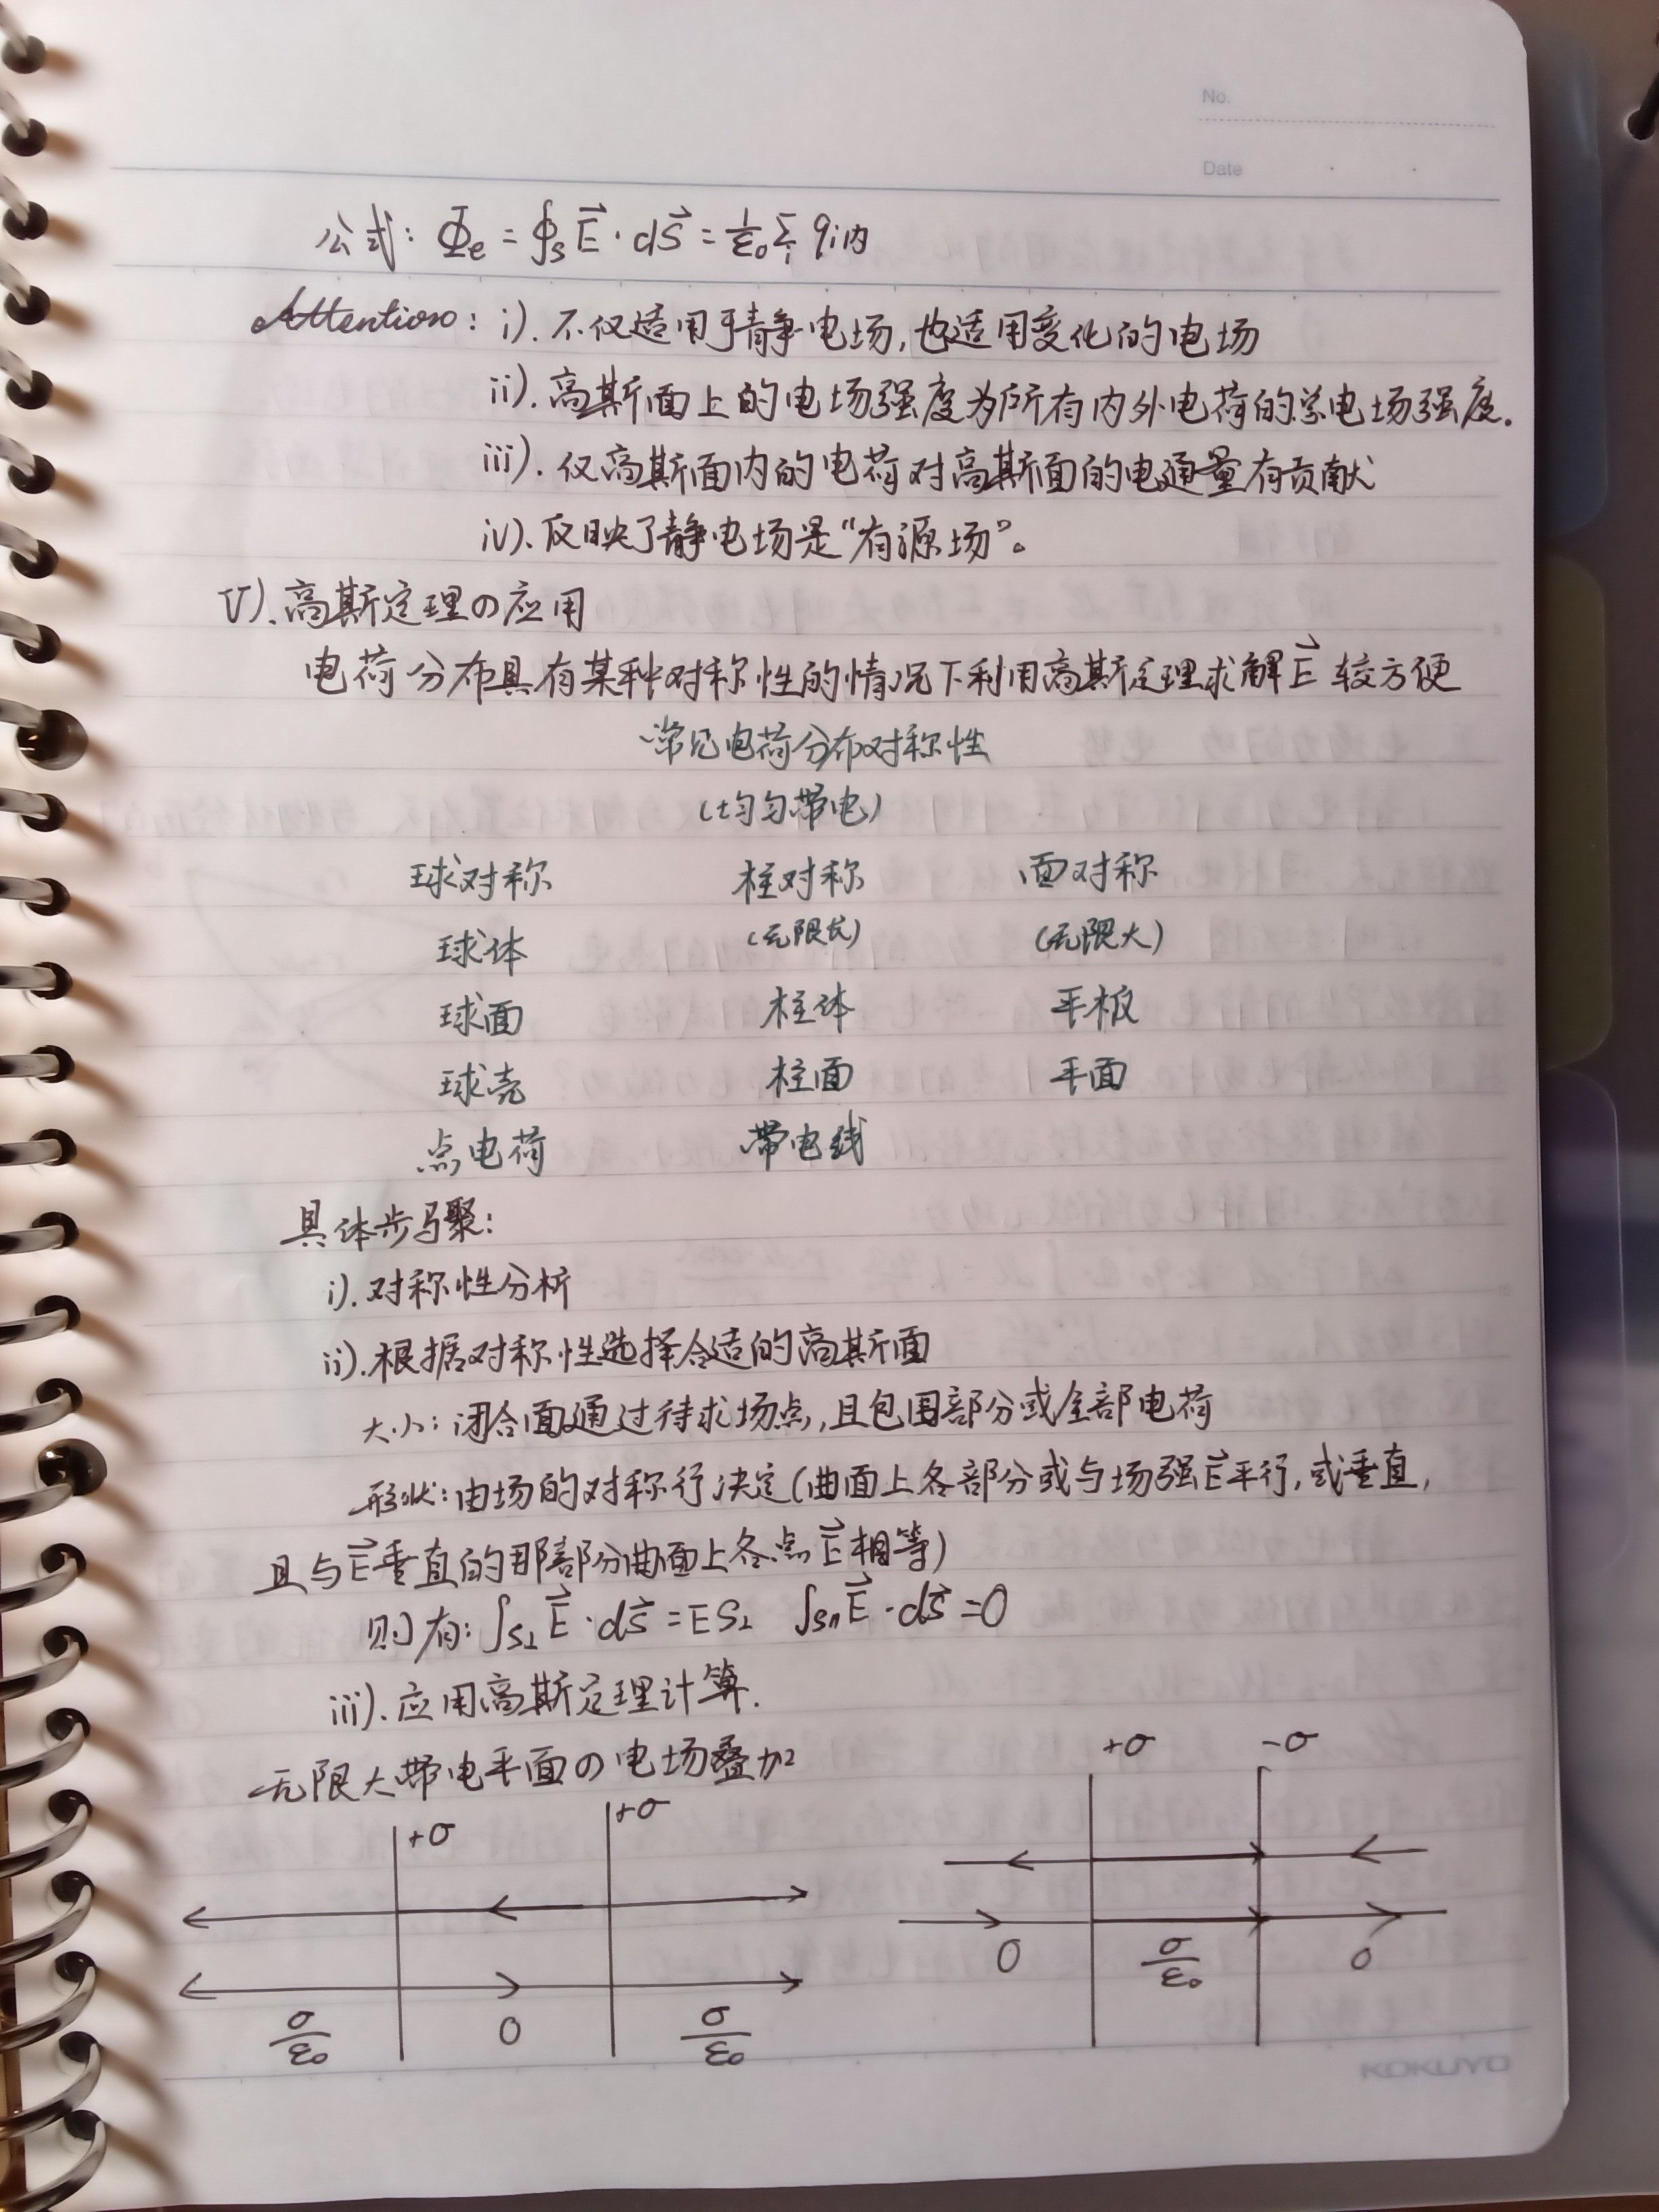 No.
Date
公式: Φe = ∮s E⃗ · dS⃗ = 1/ε0 Σi qi内
Attention: i). 不仅适用于静电场,也适用变化的电场
ii). 高斯面上的电场强度为所有内外电荷的总电场强度.
iii). 仅高斯面内的电荷对高斯面的电通量有贡献
iv). 反映了静电场是“有源场”。
V). 高斯定理の应用
电荷分布具有某种对称性的情况下利用高斯定理求解E⃗ 较方便
常见电荷分布对称性
(均匀带电)
球对称 柱对称 面对称
球体 (无限长) (无限大)
球面 柱体 平板
球壳 柱面 平面
点电荷 带电线
具体步骤:
i). 对称性分析
ii). 根据对称性选择合适的高斯面
大小: 闭合面通过待求场点,且包围部分或全部电荷
形状: 由场的对称行决定(曲面上各部分或与场强E⃗平行,或垂直,
且与E⃗垂直的那部分曲面上各点E⃗相等)
则有: ∫S⊥ E⃗ · dS⃗ = ES⊥ ∫S∥ E⃗ · dS⃗ = 0
iii). 应用高斯定理计算.
无限大带电平面の电场叠加
+σ +σ
σ/ε0 0 σ/ε0
+σ -σ
0 σ/ε0 0
KOKUYO